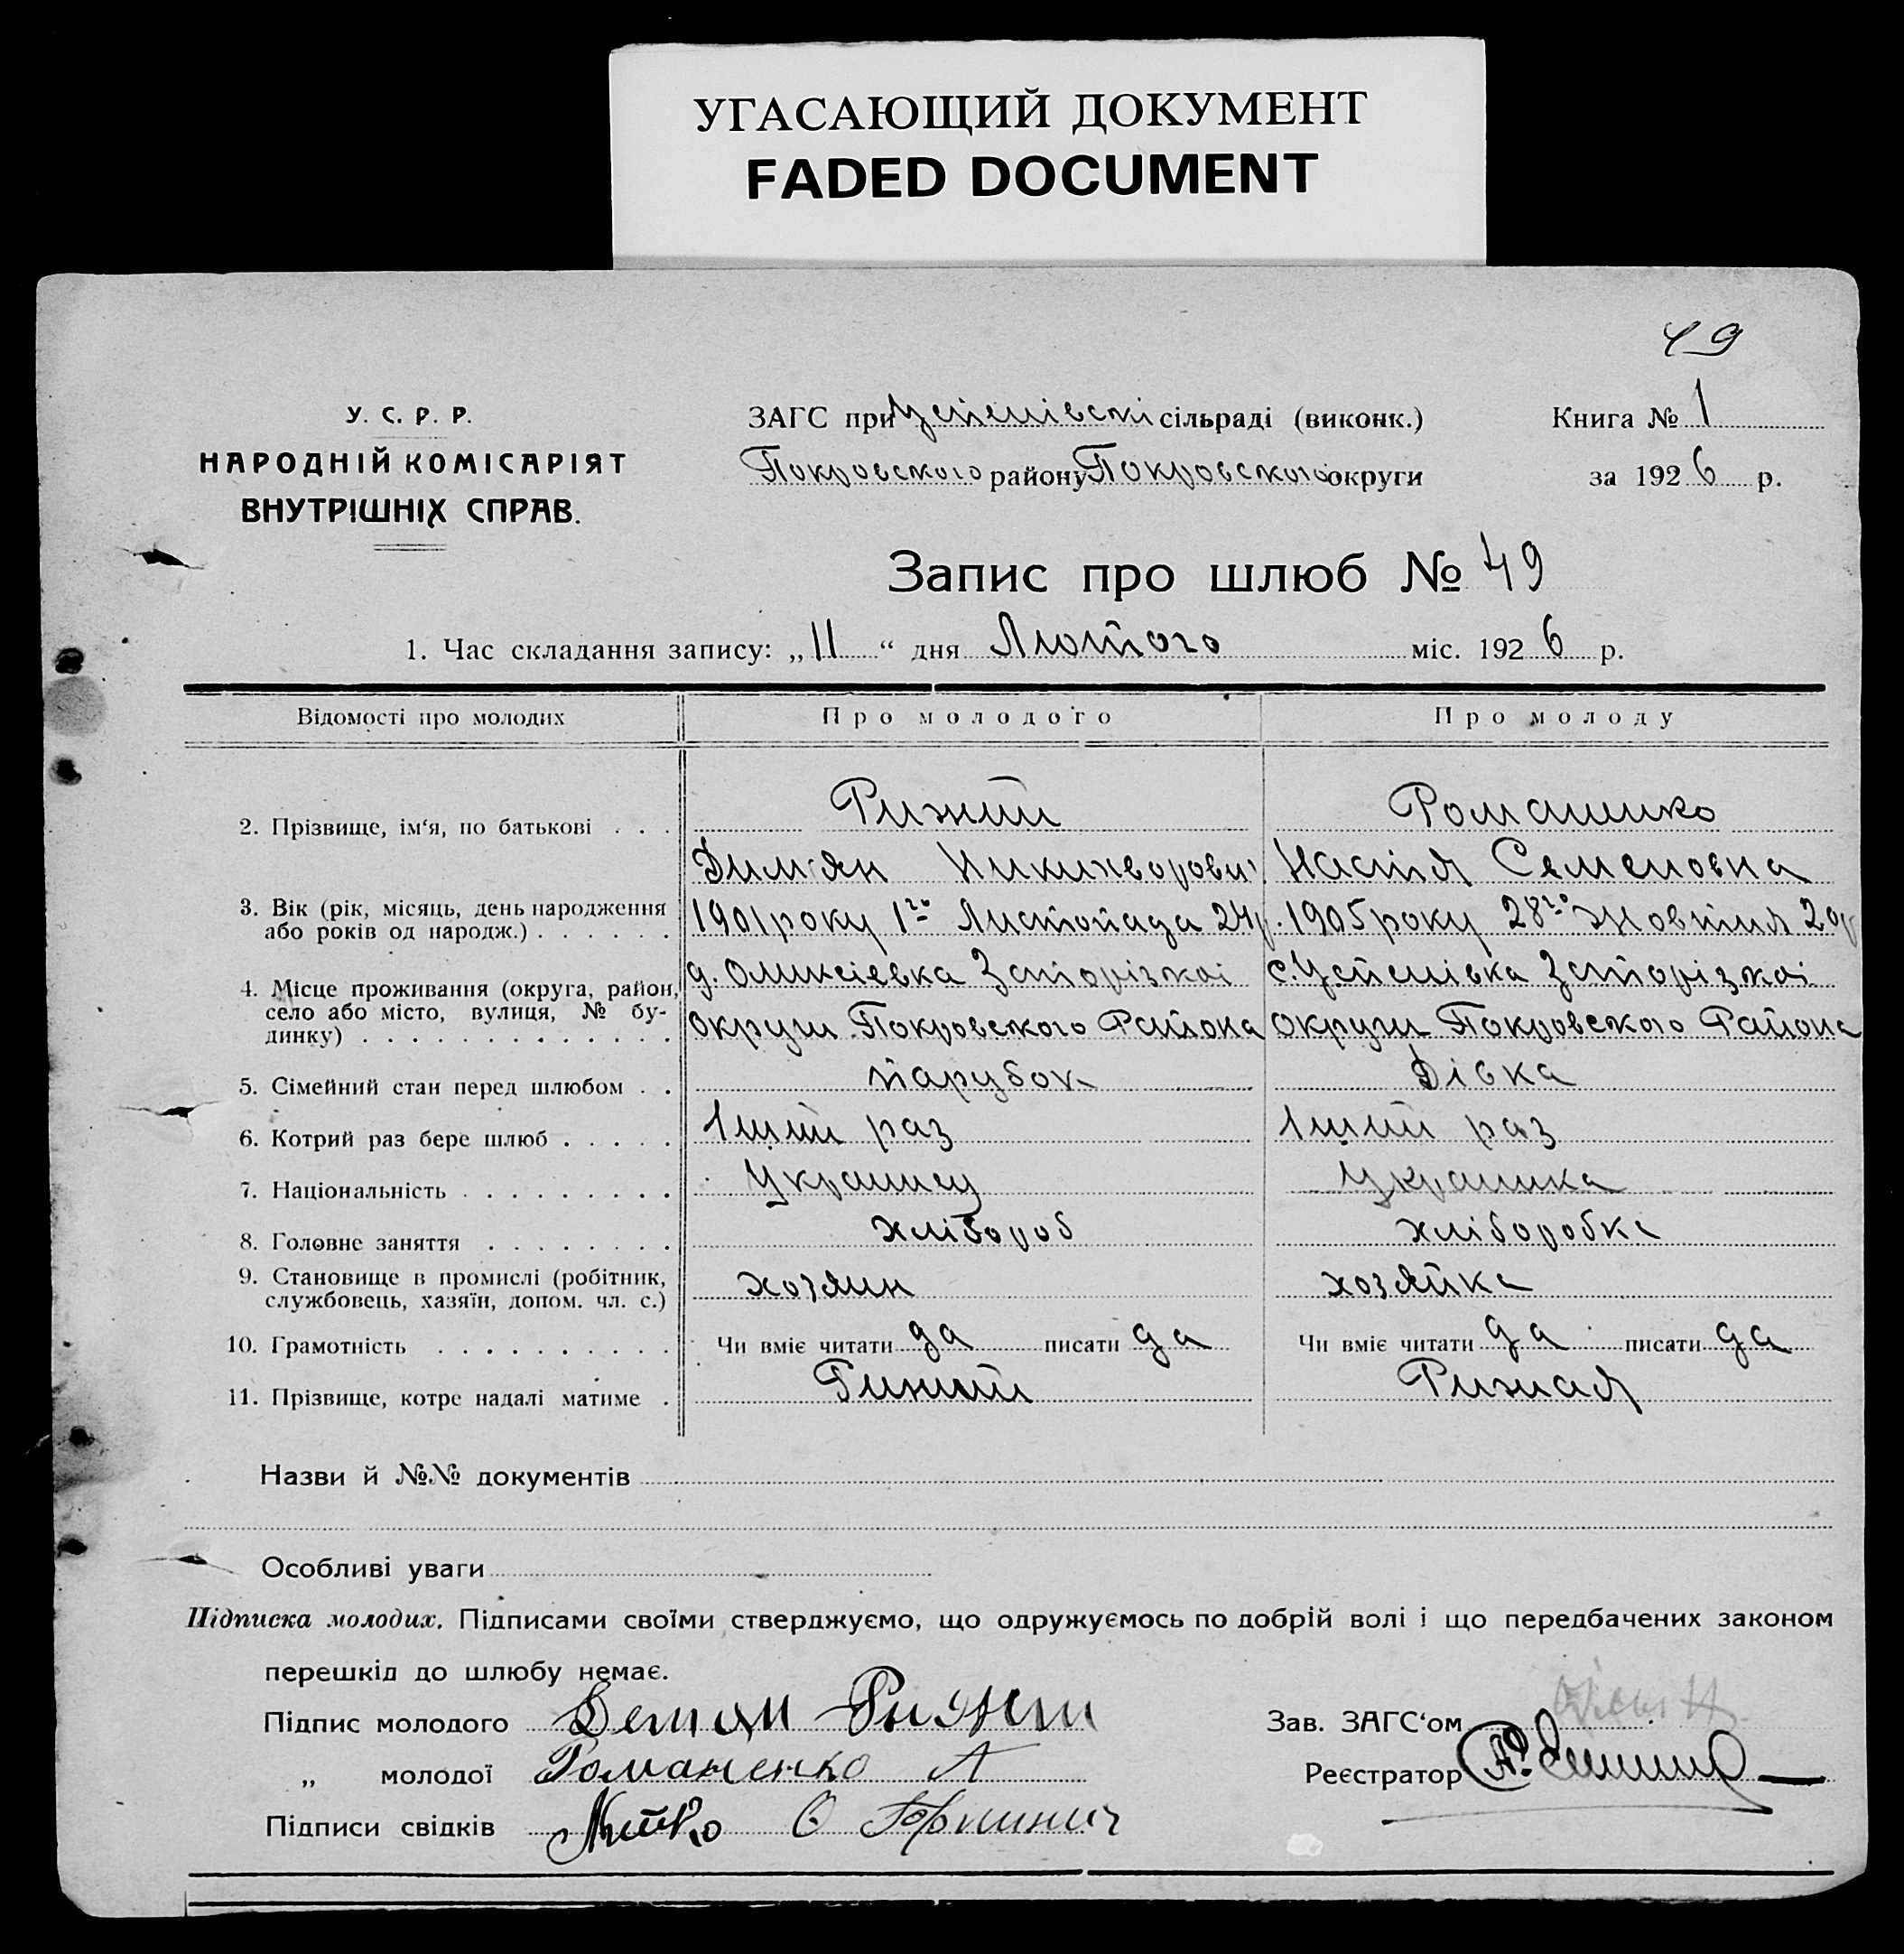 УГАСАЮЩИЙ ДОКУМЕНТ
FADED DOCUMENT
49
У. С. Р. Р.
НАРОДНІЙ КОМІСАРІЯТ
ВНУТРІШНІХ СПРАВ.
ЗАГС при Успенівскі сільраді (виконк.)
Покровского району Покровского округи
Книга № 1
за 1926 р.
Запис про шлюб № 49
1. Час складання запису: „11“ дня Лютого міс. 1926 р.
Відомості про молодих Про молодого Про молоду
2. Прізвище, ім‘я, по батькові . . . Рижий Романико
Дим'ян Никихворович Настя Семеновна
3. Вік (рік, місяць, день народження або років од народж.) . . . . . . 1901 року 1го Листопада 24 р. 1905 року 28го Жовтня 20 р
4. Місце проживання (округа, район, село або місто, вулиця, № будинку) . . . . . . . . . . . . . д. Оликсіевка Запорізкоі с. Успенівка Запорізкоі
округи Покровского Района округи Покровского Района
5. Сімейний стан перед шлюбом . . парубок Дівка
6. Котрий раз бере шлюб . . . . . 1ший раз 1ший раз
7. Національність . . . . . . . . . Украинец Украинка
8. Головне заняття . . . . . . . . хлібороб хліборобка
9. Становище в промислі (робітник, службовець, хазяїн, допом. чл. с.) хозяин хозяйка
10. Грамотність . . . . . . . . . . Чи вміє читати да писати да Чи вміє читати да писати да
11. Прізвище, котре надалі матиме . Рижий Рижая
Назви й №№ документів
Особливі уваги
Підписка молодих. Підписами своїми стверджуємо, що одружуємось по добрій волі і що передбачених законом
перешкід до шлюбу немає.
Підпис молодого Демян Рижий
Зав. ЗАГС‘ом
„ молодої Романенко А
Реєстратор
Підписи свідків